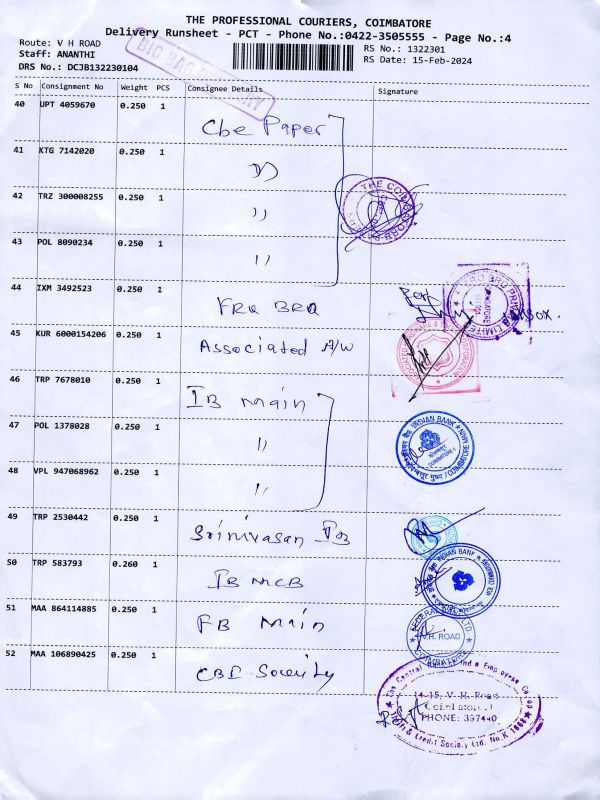 THE PROFESSIONAL COURIERS, COIMBATORE
Delivery Runsheet - PCT - Phone No.:0422-3505555 - Page No.:4
Route: V H ROAD
RS No.: 1322301
Staff: ANANTHI
RS Date: 15-Feb-2024
DRS No.: DCJB132230104
BIG BAG
S No Consignment No Weight PCS Consignee Details Signature
40 UPT 4059670 0.250 1 Cbe Paper
41 KTG 7142020 0.250 1 ))
42 TRZ 300008255 0.250 1 ))
43 POL 8090234 0.250 1 ))
44 IXM 3492523 0.250 1
45 KUR 6000154206 0.250 1 Associated A/W
46 TRP 7678010 0.250 1 IB Main
47 POL 1378028 0.250 1 ))
48 VPL 947068962 0.250 1 ))
49 TRP 2530442 0.250 1 Srinivasan
50 TRP 583793 0.260 1 IB MCB
51 MAA 864114885 0.250 1 FB Main
52 MAA 106890425 0.250 1 CBI Society
INDIAN BANK
COIMBATORE MAIN
INDIAN BANK
V.H. ROAD
COIMBATORE
14-15, V. H. Road
Coimbatore
PHONE: 397440
& Credit Society Ltd. No.K 1868